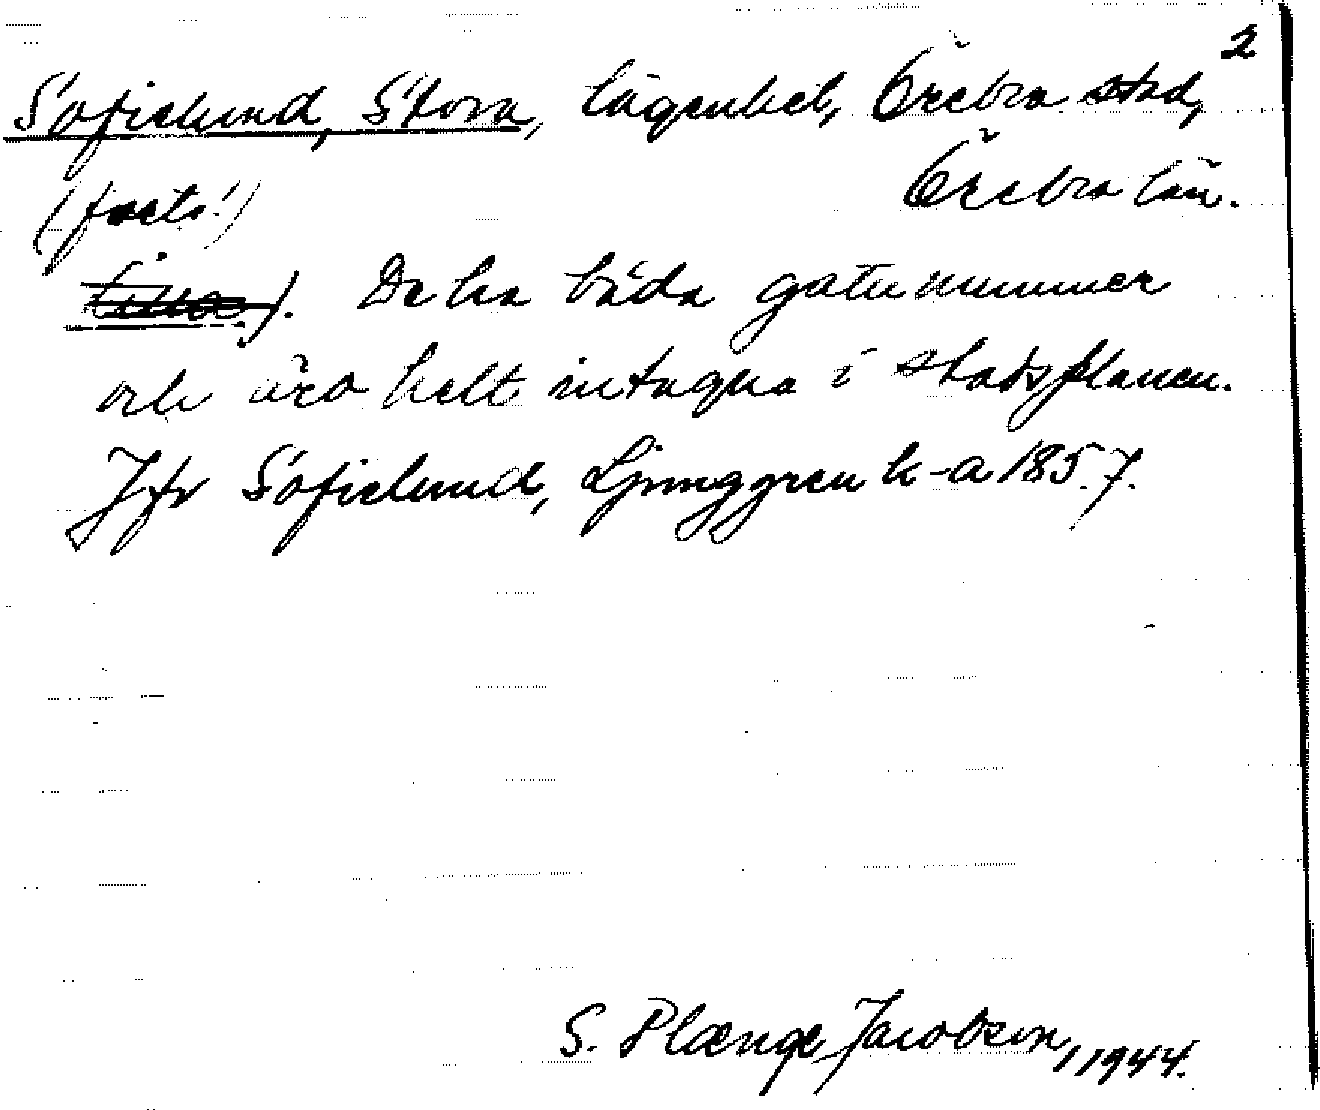 2
Sofielund, Stora, lägenhet, Örebro stad,
(forts.) Örebro län.
). De ha båda gatunummer
och äro helt intagna i stadsplanen.
Jfr Sofielund, Ljunggren h-a 185.7.
S. Plænge Jacobson, 1944.